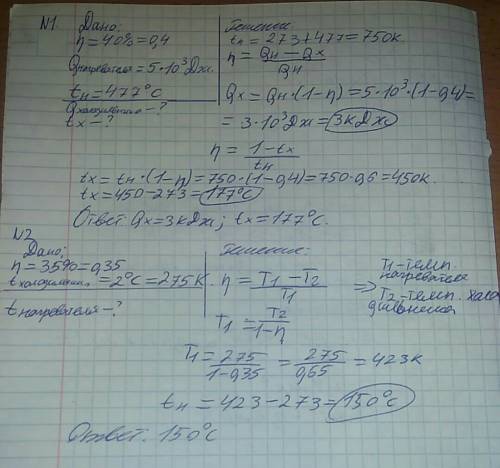 N1 Дано:
η = 40% = 0,4
Qнагревателя = 5·10³ Дж.
tн = 477°C
Qхолодильника - ?
tx - ?
Решение
tн = 273 + 477 = 750К
η = Qн - Qx / Qн
Qx = Qн·(1-η) = 5·10³·(1-0,4) =
= 3·10³ Дж = 3кДж
η = 1 - tx / tн
tx = tн·(1-η) = 750·(1-0,4) = 750·0,6 = 450К.
tx = 450 - 273 = 177°C
Ответ Qx = 3кДж; tx = 177°C.
N2
Дано:
η = 35% = 0,35
t холодильника = 2°C = 275К
t нагревателя - ?
Решение:
η = T1 - T2 / T1 ⇒
T1 - темп. нагревателя
T2 - темп. холо
дильника
T1 = T2 / 1-η
T1 = 275 / 1-0,35 = 275 / 0,65 = 423К
tн = 423 - 273 = 150°C
Ответ. 150°C